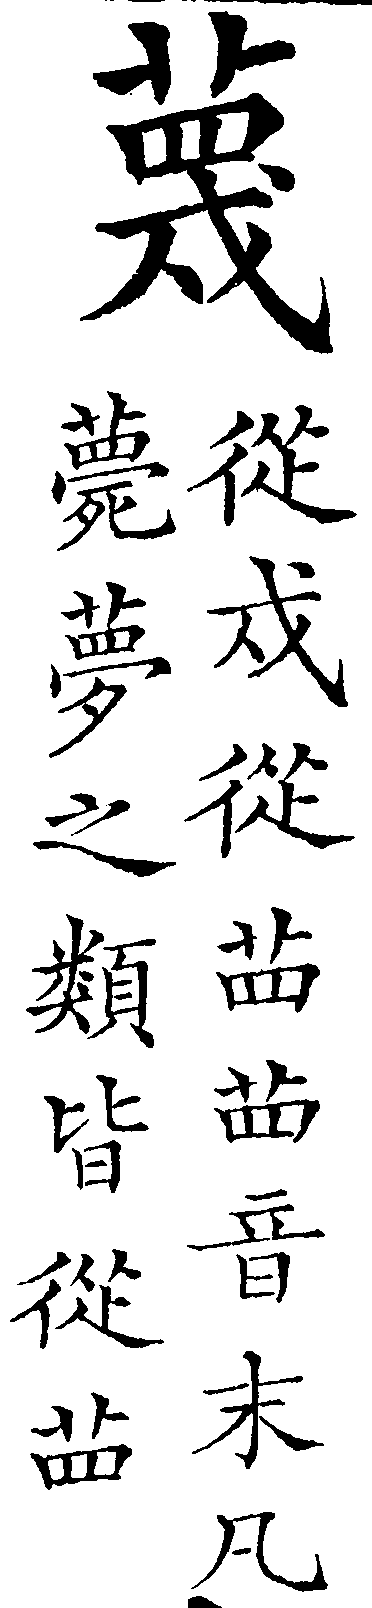 蔑
從戍從苜苜音末凡
薨夢之類皆從苜